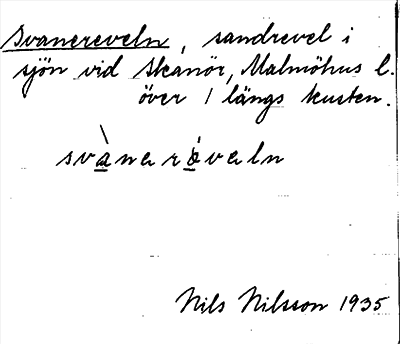 Svanereveln, sandrevel i
sjön vid Skanör, Malmöhus l.
över / längs kusten.
svànerǻveln
Nils Nilsson 1935